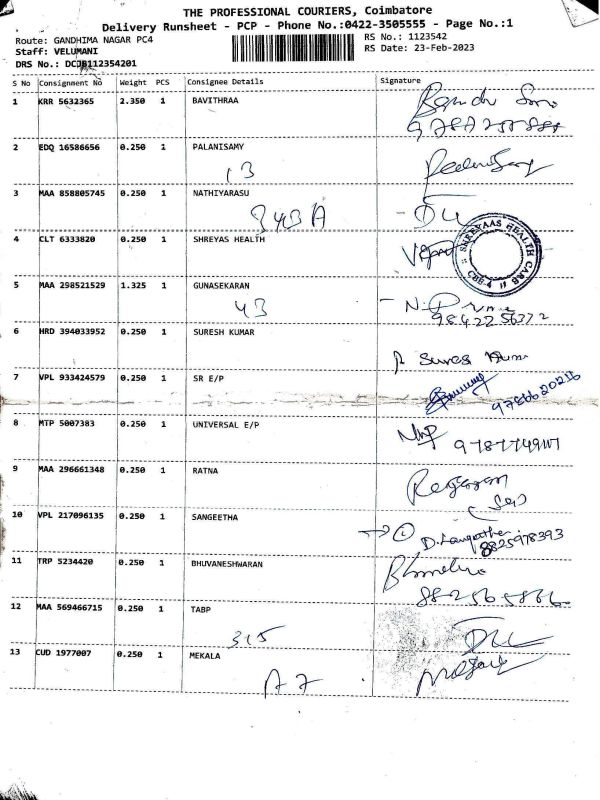 THE PROFESSIONAL COURIERS, Coimbatore
Delivery Runsheet - PCP - Phone No.:0422-3505555 - Page No.:1
Route: GANDHIMA NAGAR PC4
RS No.: 1123542
Staff: VELUMANI
RS Date: 23-Feb-2023
DRS No.: DCJB112354201
S No Consignment No Weight PCS Consignee Details Signature
1 KRR 5632365 2.350 1 BAVITHRAA
2 EDQ 16586656 0.250 1 PALANISAMY
13
3 MAA 858805745 0.250 1 NATHIYARASU
343 A
4 CLT 6333820 0.250 1 SHREYAS HEALTH
SHREYAAS HEALTH CARE CBE-4
5 MAA 298521529 1.325 1 GUNASEKARAN
43
98422 56372
6 HRD 394033952 0.250 1 SURESH KUMAR
7 VPL 933424579 0.250 1 SR E/P
8 MTP 5007383 0.250 1 UNIVERSAL E/P
9 MAA 296661348 0.250 1 RATNA
10 VPL 217096135 0.250 1 SANGEETHA
8825978393
11 TRP 5234420 0.250 1 BHUVANESHWARAN
12 MAA 569466715 0.250 1 TABP
315
13 CUD 1977007 0.250 1 MEKALA
A7